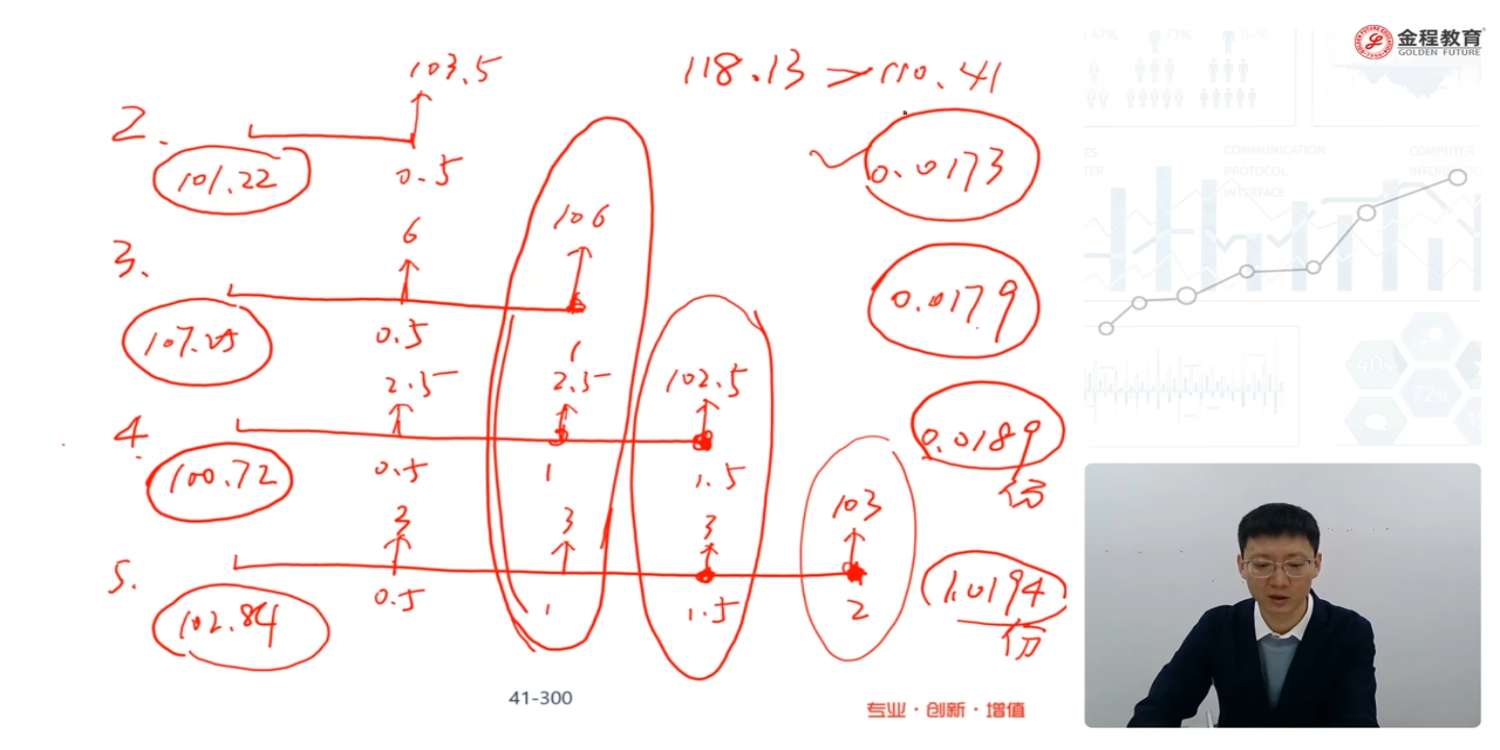 金程教育
GOLDEN FUTURE
103.5
118.13 > 110.41
2.
101.22
0.5
0.0173
6
106
3.
107.25
0.5
1
0.0179
2.5
2.5
102.5
4.
100.72
0.5
1
1.5
0.0189
份
3
3
3
103
5.
102.84
0.5
1
1.5
2
1.0194
份
41-300
专业·创新·增值
COMMUNICATION
PROTOCOL
INTERFACE
COMPUTER